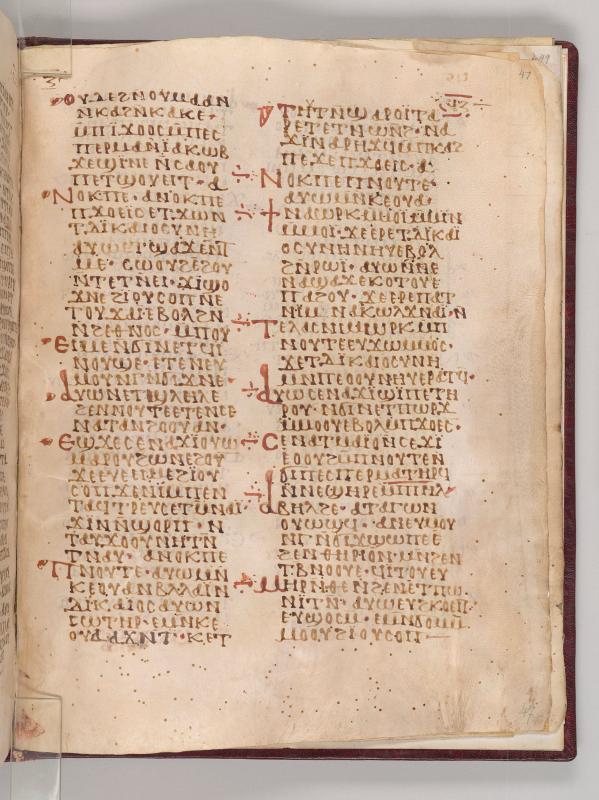 ⲟⲩⲇⲉϩⲛⲟⲩⲙⲁⲁⲛ
ⲛⲕⲁϩⲛⲕⲁⲕⲉ·
ⲙⲡⲓϫⲟⲟⲥⲙⲡⲉⲥ
ⲡⲉⲣⲙⲁⲛⲓ̈ⲁⲕⲱⲃ
ϫⲉϣⲓⲛⲉⲛⲥⲁⲟⲩ
ⲡⲉⲧϣⲟⲩⲉⲓⲧ·ⲁ
ⲛⲟⲕⲡⲉ·ⲁⲛⲟⲕⲡⲉ
ⲡϫⲟⲉⲓⲥⲉⲧϫⲱⲛ
ⲧⲇⲓ̈ⲕⲁⲓⲟⲥⲩⲛⲏ
ⲁⲩⲱⲉⲧϣⲁϫⲉⲛⲧ
ⲙⲉ·ⲥⲱⲟⲩϩⲉϩⲟⲩ
ⲛⲧⲉⲧⲛⲉⲓ·ϫⲓϣⲟ
ϫⲛⲉϩⲓⲟⲩⲥⲟⲡⲛⲉ
ⲧⲟⲩϫⲁⲓ̈ⲉⲃⲟⲗϩⲛ
ⲛϩⲉⲑⲛⲟⲥ·ⲙⲡⲟⲩ
ⲉⲓⲙⲉⲛϭⲓⲛⲉⲧϥⲓ
ⲛⲟⲩϣⲉ·ⲉⲧⲉⲛⲉⲩ
ⲙⲟⲩⲛⲅⲛϭⲓϫⲛⲉ·
ⲁⲩⲱⲛⲉⲧϣⲗⲏⲗⲉ
ϩⲉⲛⲛⲟⲩⲧⲉⲉⲧⲉⲛⲥⲉ
ⲛⲁⲧⲁⲛϩⲟⲟⲩⲁⲛ·
ⲉϣϫⲉⲥⲉⲛⲁϫⲓⲟⲩⲱ
ⲙⲁⲣⲟⲩϩⲱⲛⲉϩⲟⲩ
ϫⲉⲉⲩⲉⲉⲓⲙⲉϩⲓ̈ⲟⲩ
ⲥⲟⲡϫⲉⲛⲓⲙⲡⲉⲛ
ⲧⲁϥⲧⲣⲉⲩⲥⲉⲧⲙⲛⲁⲓ̈
ϫⲓⲛⲛϣⲟⲣⲡ·ⲛ
ⲧⲁⲩϫⲟⲟⲩⲛⲏⲧⲛ
ⲧⲛⲁⲩ·ⲁⲛⲟⲕⲡⲉ
ⲡⲛⲟⲩⲧⲉ·ⲁⲩⲱⲙⲛ
ⲕⲉⲟⲩⲁⲛⲃⲗⲗⲁⲓ̈ⲛ
ⲇⲓ̈ⲕⲁⲓⲟⲥⲁⲩⲱⲛ
ϩⲱⲧⲏⲣ·ⲉⲙⲛⲕⲉ
ⲟⲩⲁⲁϫⲛⲧ·ⲕⲉⲧ
ⲧⲏⲩⲧⲛϣⲁⲣⲟⲓ̈ⲧⲁ
ⲣⲉⲧⲉⲧⲛⲱⲛϩ·ⲛⲁ
ϫⲓⲛⲁⲣⲏϫϥⲙⲡⲕⲁϩ
ⲡⲉϫⲉⲡϫⲟⲉⲓⲥ·ⲁ
ⲛⲟⲕⲡⲉⲡⲛⲟⲩⲧⲉ·
ⲁⲩⲱⲙⲛⲕⲉⲟⲩⲁ·
ϯⲛⲁⲱⲣⲕⲙⲙⲟⲓ̈ⲙⲙⲓⲛ
ⲙⲙⲟⲓ̈·ϫⲉⲉⲣⲉⲧⲇⲓ̈ⲕⲁⲓ̈
ⲟⲥⲩⲛⲏⲛⲏⲩⲉⲃⲟⲗ
ϩⲛⲣⲱⲓ̈·ⲁⲩⲱⲛⲛⲉ
ⲛⲁϣⲁϫⲉⲕⲟⲧⲟⲩⲉ
ⲡⲁϩⲟⲩ·ϫⲉⲉⲣⲉⲡⲁⲧ
ⲛⲓⲙⲛⲁⲕⲱⲗϫⲛⲁⲓ̈·ⲛ
ⲧⲉⲗⲁⲥⲛⲓⲙⲱⲣⲕⲙⲡ
ⲛⲟⲩⲧⲉⲉⲩϫⲱⲙⲙⲟⲥ·
ϫⲉⲧⲇⲓⲕⲁⲓⲟⲥⲩⲛⲏ
ⲙⲛⲡⲉⲟⲟⲩⲛⲏⲩϣⲁⲣⲟϥ·
ⲁⲩⲱⲥⲉⲛⲁϫⲓϣⲓⲡⲉⲧⲏ
ⲣⲟⲩ·ⲛϭⲓⲛⲉⲧⲡⲱⲣϫ
ⲙⲙⲟⲟⲩⲉⲃⲟⲗⲙⲡϫⲟⲉⲓⲥ·
ⲥⲉⲛⲁⲧⲙⲁⲓⲟⲛⲥⲉϫⲓ
ⲉⲟⲟⲩϩⲙⲡⲛⲟⲩⲧⲉⲛ
ϭⲓⲡⲉⲥⲡⲉⲣⲙⲁⲧⲏⲣϥ
ⲛⲛϣⲏⲣⲉⲙⲡⲓⲏⲗ
ⲁⲃⲏⲗϩⲉ·ⲁⲧⲁⲅⲱⲛ
ⲟⲩⲱϣϥ·ⲁⲛⲉⲩⲙⲟⲩ
ⲛⲅⲛϭⲓϫϣⲱⲡⲉⲉ
ϩⲉⲛⲑⲏⲣⲓⲟⲛ·ⲙⲛϩⲉⲛ
ⲧⲃⲛⲟⲟⲩⲉ·ϥⲓⲧⲟⲩⲉⲩ
ⲙⲏⲣⲛⲑⲉⲛϩⲉⲛⲉⲧⲡⲱ
ⲛⲓ̈ⲧⲛ·ⲁⲩⲱⲉⲩϩⲕⲟⲉⲓⲧ·
ⲉⲩⲱϭⲙ·ⲉⲙⲛϭⲟⲙⲙ
ⲙⲟⲟⲩϩⲓⲟⲩⲥⲟⲡ